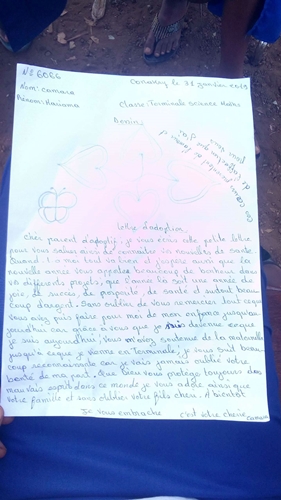 N° 6066
Conakry le 31 janvier 2019
Nom: camara
Prénom: Mariama
Classe: Terminale Science Maths
Lettre d'adoption
Cher parent d'adoptif, je vous écris cette petite lettre
pour vous saluer ainsi de connaître vos nouvelles de santé
Quand à moi tout va bien et j'espère aussi que la
nouvelle année vous apportes beaucoup de bonheur dans
vos différents projets, que l'année 2019 soit une année de
joie, de succès, de prospérité, de santé et surtout beau-
coup d'argent. Sans oublier de vous remercier tout ce que
vous avez puis faire pour moi de mon enfance jusqu'au
jourd'hui car grâce à vous que je suis devenue ce que
je suis aujourd'hui, vous m'avez soutenue de la maternelle
jusqu'à ce que je vienne en Terminale, je vous suit beau-
coup reconnaissante car je vais jamais oublié votre
bonté de ma part. Que Dieu vous protège toujours des
mauvais esprits dans ce monde je vous adore ainsi que
votre famille et sans oublier votre fils cheri. A bientôt
Je vous embrache
c'est votre cherie
camara